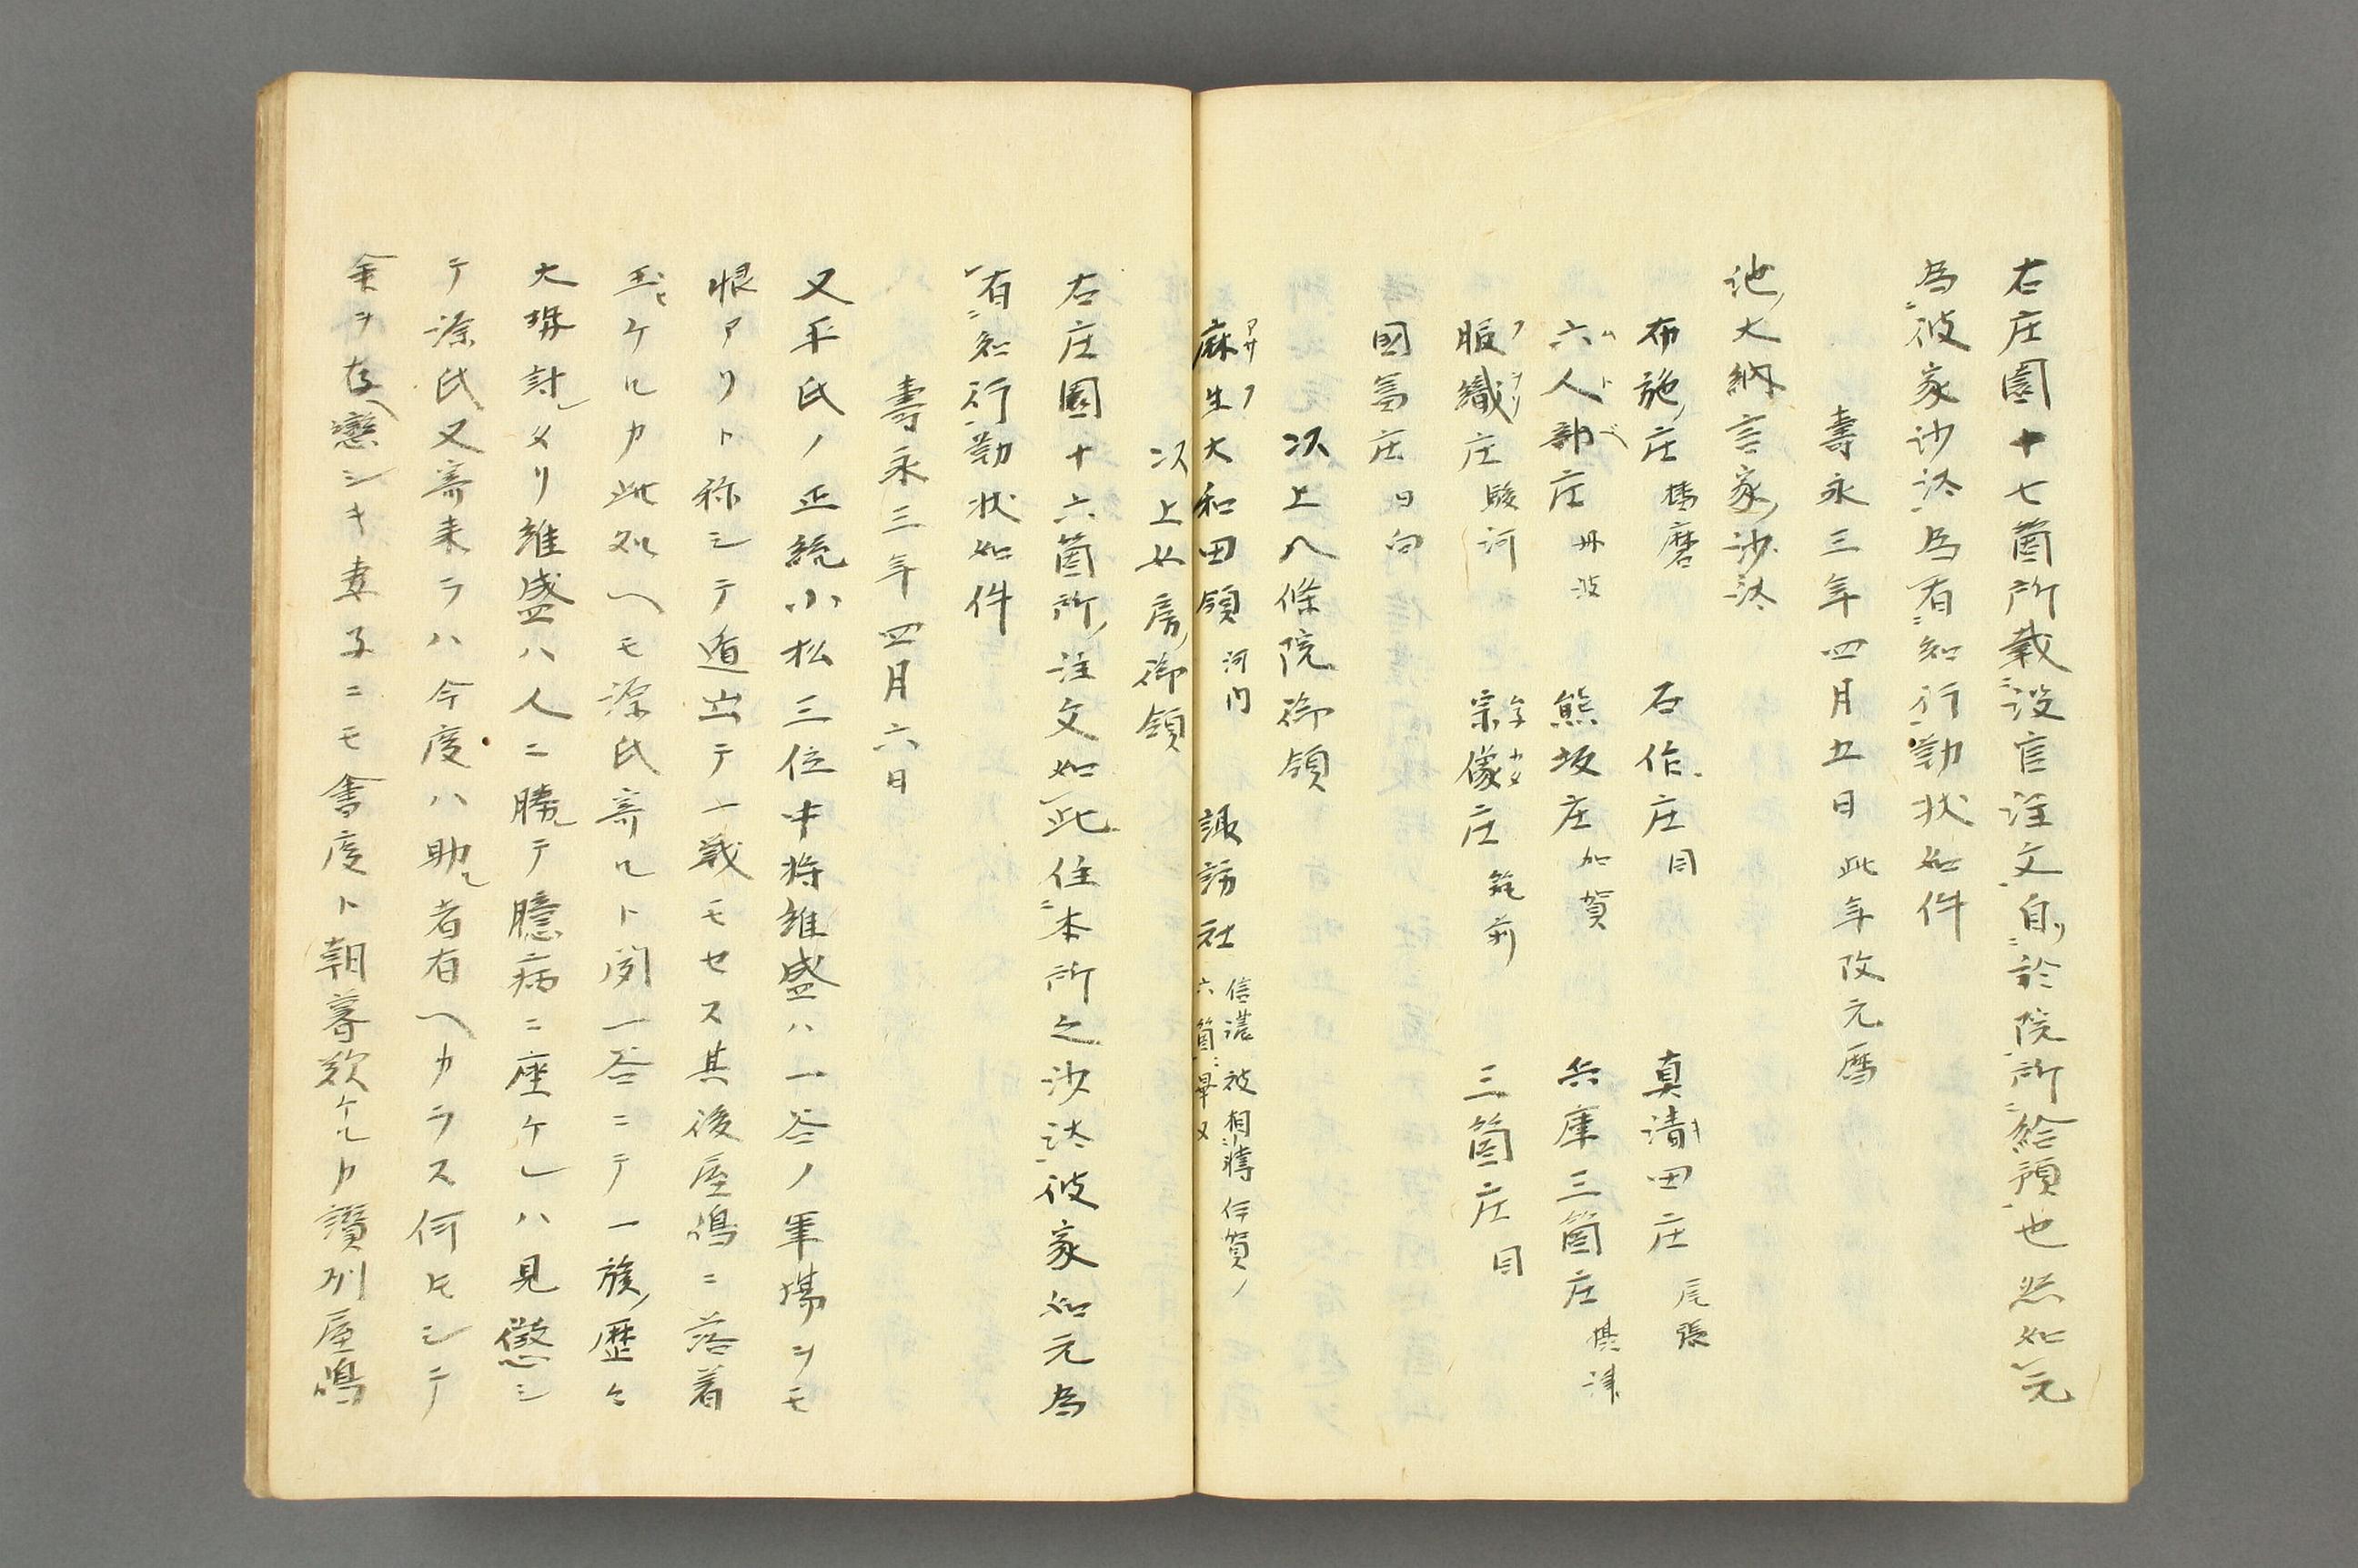 右庄園十七箇所載没官注文自於院所給預也然如元
為彼家沙汰為有知行勒状如件
壽永三年四月五日此年改元暦
池大納言家沙汰
布施庄 播磨 石作庄 同 真清田庄 尾張
六人部庄 丹波 熊坂庄 加賀 兵庫三箇庄 摂津
服織庄 駿河 宗像庄 筑前 三箇庄 同
國冨庄 日向
次上八條院御領
麻生大和田領 河内 諏訪社 信濃被相博伊賀ノ六箇畢又
次上女房御領
右庄園十六箇所注文如此任本所之沙汰彼家如元為
有知行勒状如件
壽永三年四月六日
又平氏ノ正統小松三位中将維盛ハ一谷ノ軍場ヲモ
恨アリト称シテ遁出テ一戦モセス其後屋嶋ニ落着
玉ヒケルカ此処ヘモ源氏寄ルト聞一谷ニテ一族歴々
大畧討レタリ維盛ハ人ニ勝レテ臆病ニ座ケレハ見懲シ
テ源氏又寄来ラハ今度ハ助ル者有ヘカラス何トシテ
命ヲ存ヘ戀シキ妻子ニモ會度ト朝暮歎ケルカ讃州屋嶋